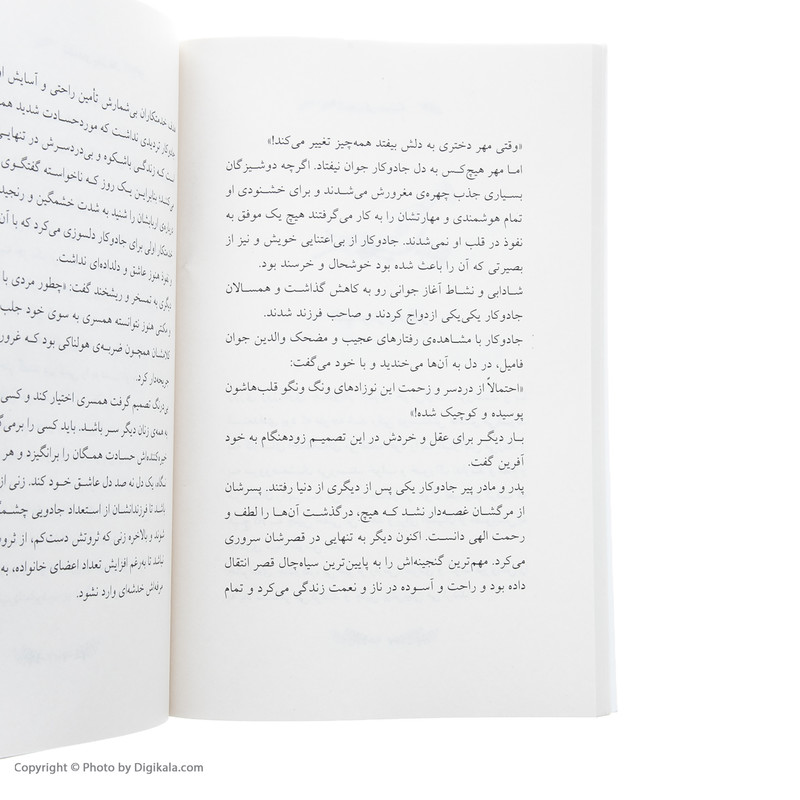 «وقتی مهر دختری به دلش بیفتد همه‌چیز تغییر می‌کند!»
اما مهر هیچ‌کس به دل جادوکار جوان نیفتاد. اگرچه دوشیزگان
بسیاری جذب چهره‌ی مغرورش می‌شدند و برای خشنودی او
تمام هوشمندی و مهارتشان را به کار می‌گرفتند هیچ یک موفق به
نفوذ در قلب او نمی‌شدند. جادوکار از بی‌اعتنایی خویش و نیز از
بصیرتی که آن را باعث شده بود خوشحال و خرسند بود.
شادابی و نشاط آغاز جوانی رو به کاهش گذاشت و همسالان
جادوکار یکی‌یکی ازدواج کردند و صاحب فرزند شدند.
جادوکار با مشاهده‌ی رفتارهای عجیب و مضحک والدین جوان
فامیل، در دل به آن‌ها می‌خندید و با خود می‌گفت:
«احتمالاً از دردسر و زحمت این نوزادهای ونگ ونگو قلب‌هاشون
پوسیده و کوچیک شده!»
بار دیگر برای عقل و خردش در این تصمیم زودهنگام به خود
آفرین گفت.
پدر و مادر پیر جادوکار یکی پس از دیگری از دنیا رفتند. پسرشان
از مرگشان غصه‌دار نشد که هیچ، درگذشت آن‌ها را لطف و
رحمت الهی دانست. اکنون دیگر به تنهایی در قصرشان سروری
می‌کرد. مهم‌ترین گنجینه‌اش را به پایین‌ترین سیاه‌چال قصر انتقال
داده بود و راحت و آسوده در ناز و نعمت زندگی می‌کرد و تمام
خدمتکاران بی‌شمارش تأمین راحتی و آسایش
جادوکار تردیدی نداشت که مورد حسادت شدید
است که زندگی باشکوه و بی‌دردسرش در تنهایی
می‌کند؛ بنابراین یک روز که ناخواسته گفتگوی
اربابشان را شنید به شدت خشمگین و رنجید
خدمتکار اولی برای جادوکار دلسوزی می‌کرد که با آن
و نفوذ هنوز عاشق و دلداده‌ای نداشت.
دیگری به تمسخر و ریشخند گفت: «چطور مردی با
و مکنتی هنوز نتوانسته همسری به سوی خود جلب
کلامشان همچون ضربه‌ی هولناکی بود که غرور
جریحه‌دار کرد.
درنگ تصمیم گرفت همسری اختیار کند و کسی
به همه‌ی زنان دیگر سر باشد. باید کسی را برمی‌گ
خیره‌کننده‌اش حسادت همگان را برانگیزد و هر
نگاه، یک دل نه صد دل عاشق خود کند. زنی از
باشد تا فرزندانشان از استعداد جادویی چشمگ
شوند و بالاخره زنی که ثروتش دست‌کم، از ثرو
باشد تا به‌رغم افزایش تعداد اعضای خانواده، به
مرفه‌اش خدشه‌ای وارد نشود.
Copyright © Photo by Digikala.com